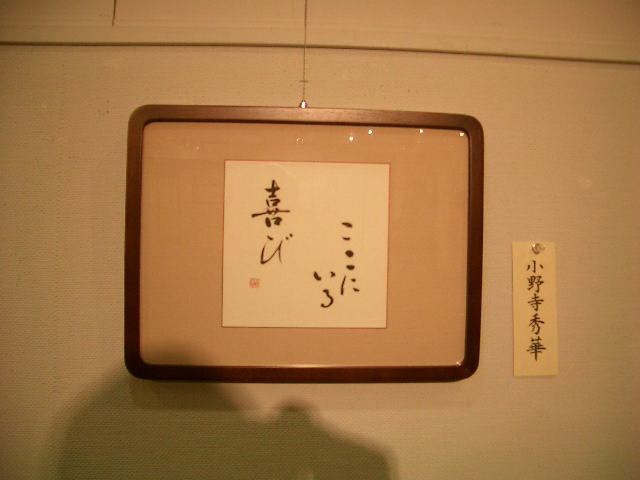 ここに
いる
喜び
小野寺秀華